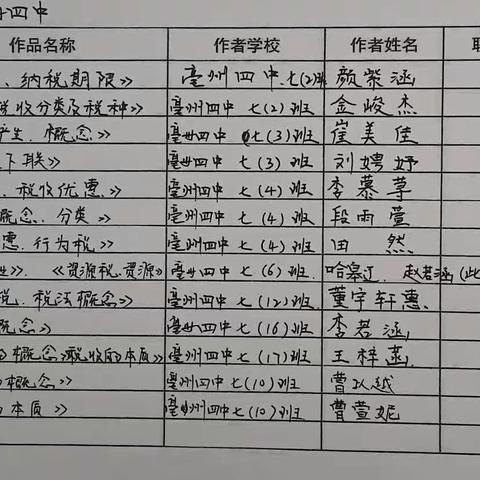 四中
作品名称 作者学校 作者姓名 职
、纳税期限》 亳州四中七(2)班 颜紫涵
税收分类及税种》 亳州四中 七(2)班 金峻杰
产生、概念》 亳州四中 七(3)班 崔美佳
下联》 亳州四中 七(3)班 刘娉妤
、税收优惠》 亳州四中 七(4)班 李慕
概念、分类》 亳州四中 七(4)班 段雨萱
行为税》 亳州四中 七(4)班 田然
》、《资源税、资源》 亳州四中 七(6)班 哈 赵若涵(此
税、税法概念》 亳州四中 七(12)班 董宇轩
概念》 亳州四中 七(16)班 李若涵
概念税收的本质》 亳州四中 七(17)班 王梓菡
概念》 亳州四中 七(10)班 曹以越
本质》 亳州四中 七(10)班 曹萱妮